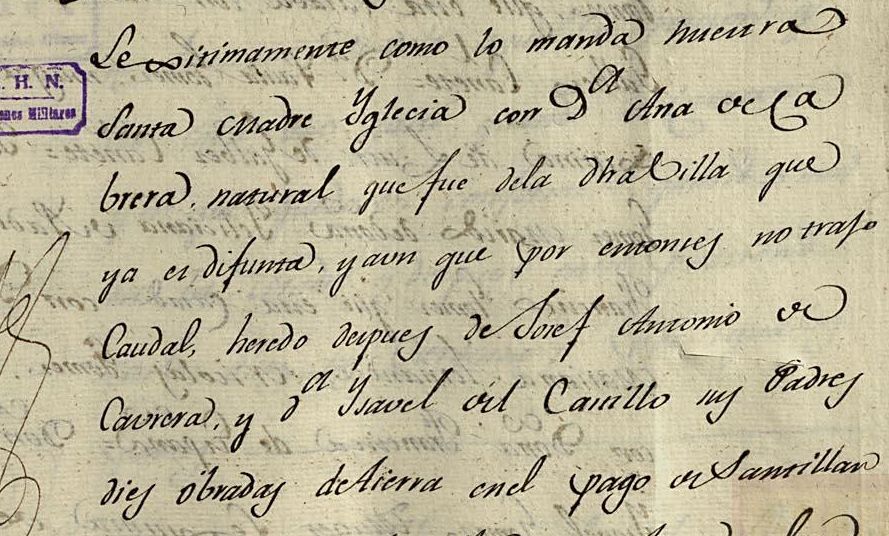 . H. N.
ones Militares
Lexitimamente como lo manda nuestra
Santa Madre Yglecia con Dª Ana de Ca
brera, natural que fue dela dha Villa que
ya es difunta, y aun que por entonses no trajo
Caudal, heredo despues de Josef Antonio de
Cavrera, y Dª Ysavel del Castillo sus Padres
dies obradas de tierra en el pago de Santillan